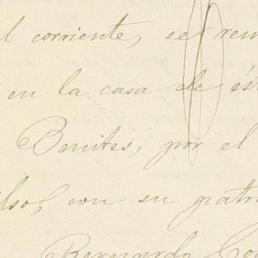 l corriente, se rem
en la casa de és
Benites, por el
lso, con su patro
Bernardo Co